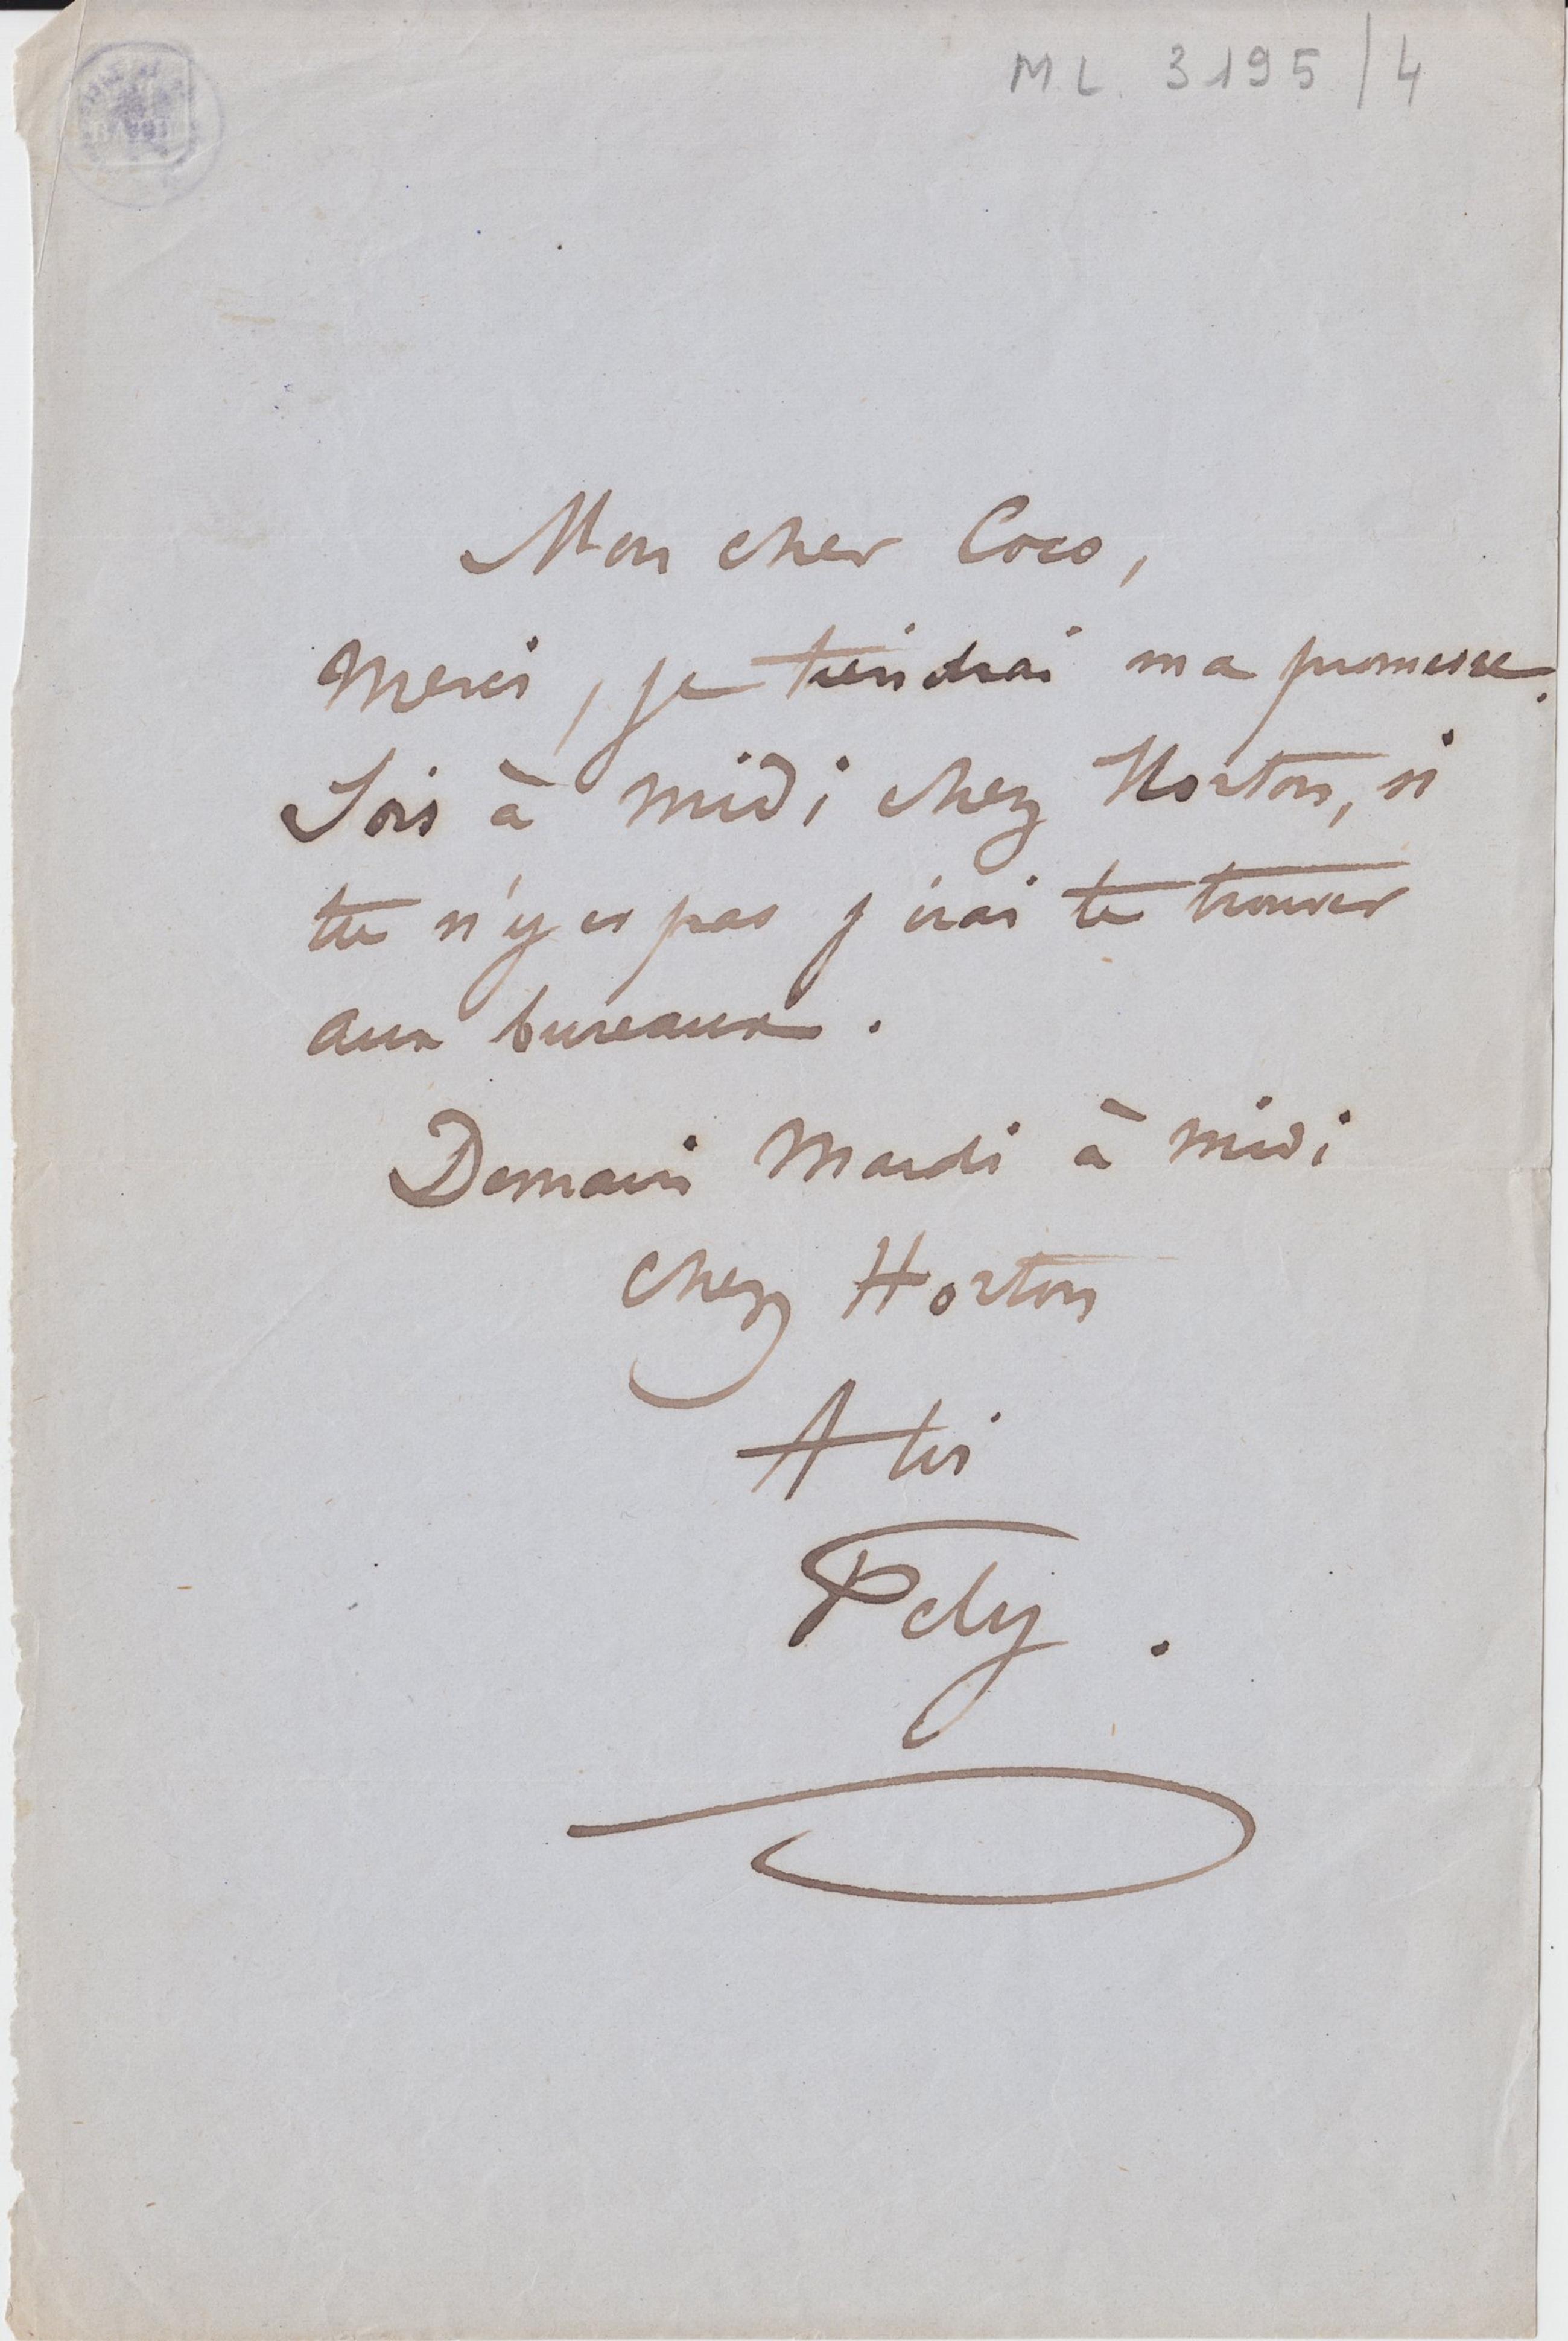 ML 3195/4
Mon cher Coco,
Merci, je tiendrai ma promesse.
Sois à midi chez Horton, si
tu n'y es pas j'irai te trouver
aux bureaux.
Demain Mardi à midi
chez Horton
A toi
Fély.